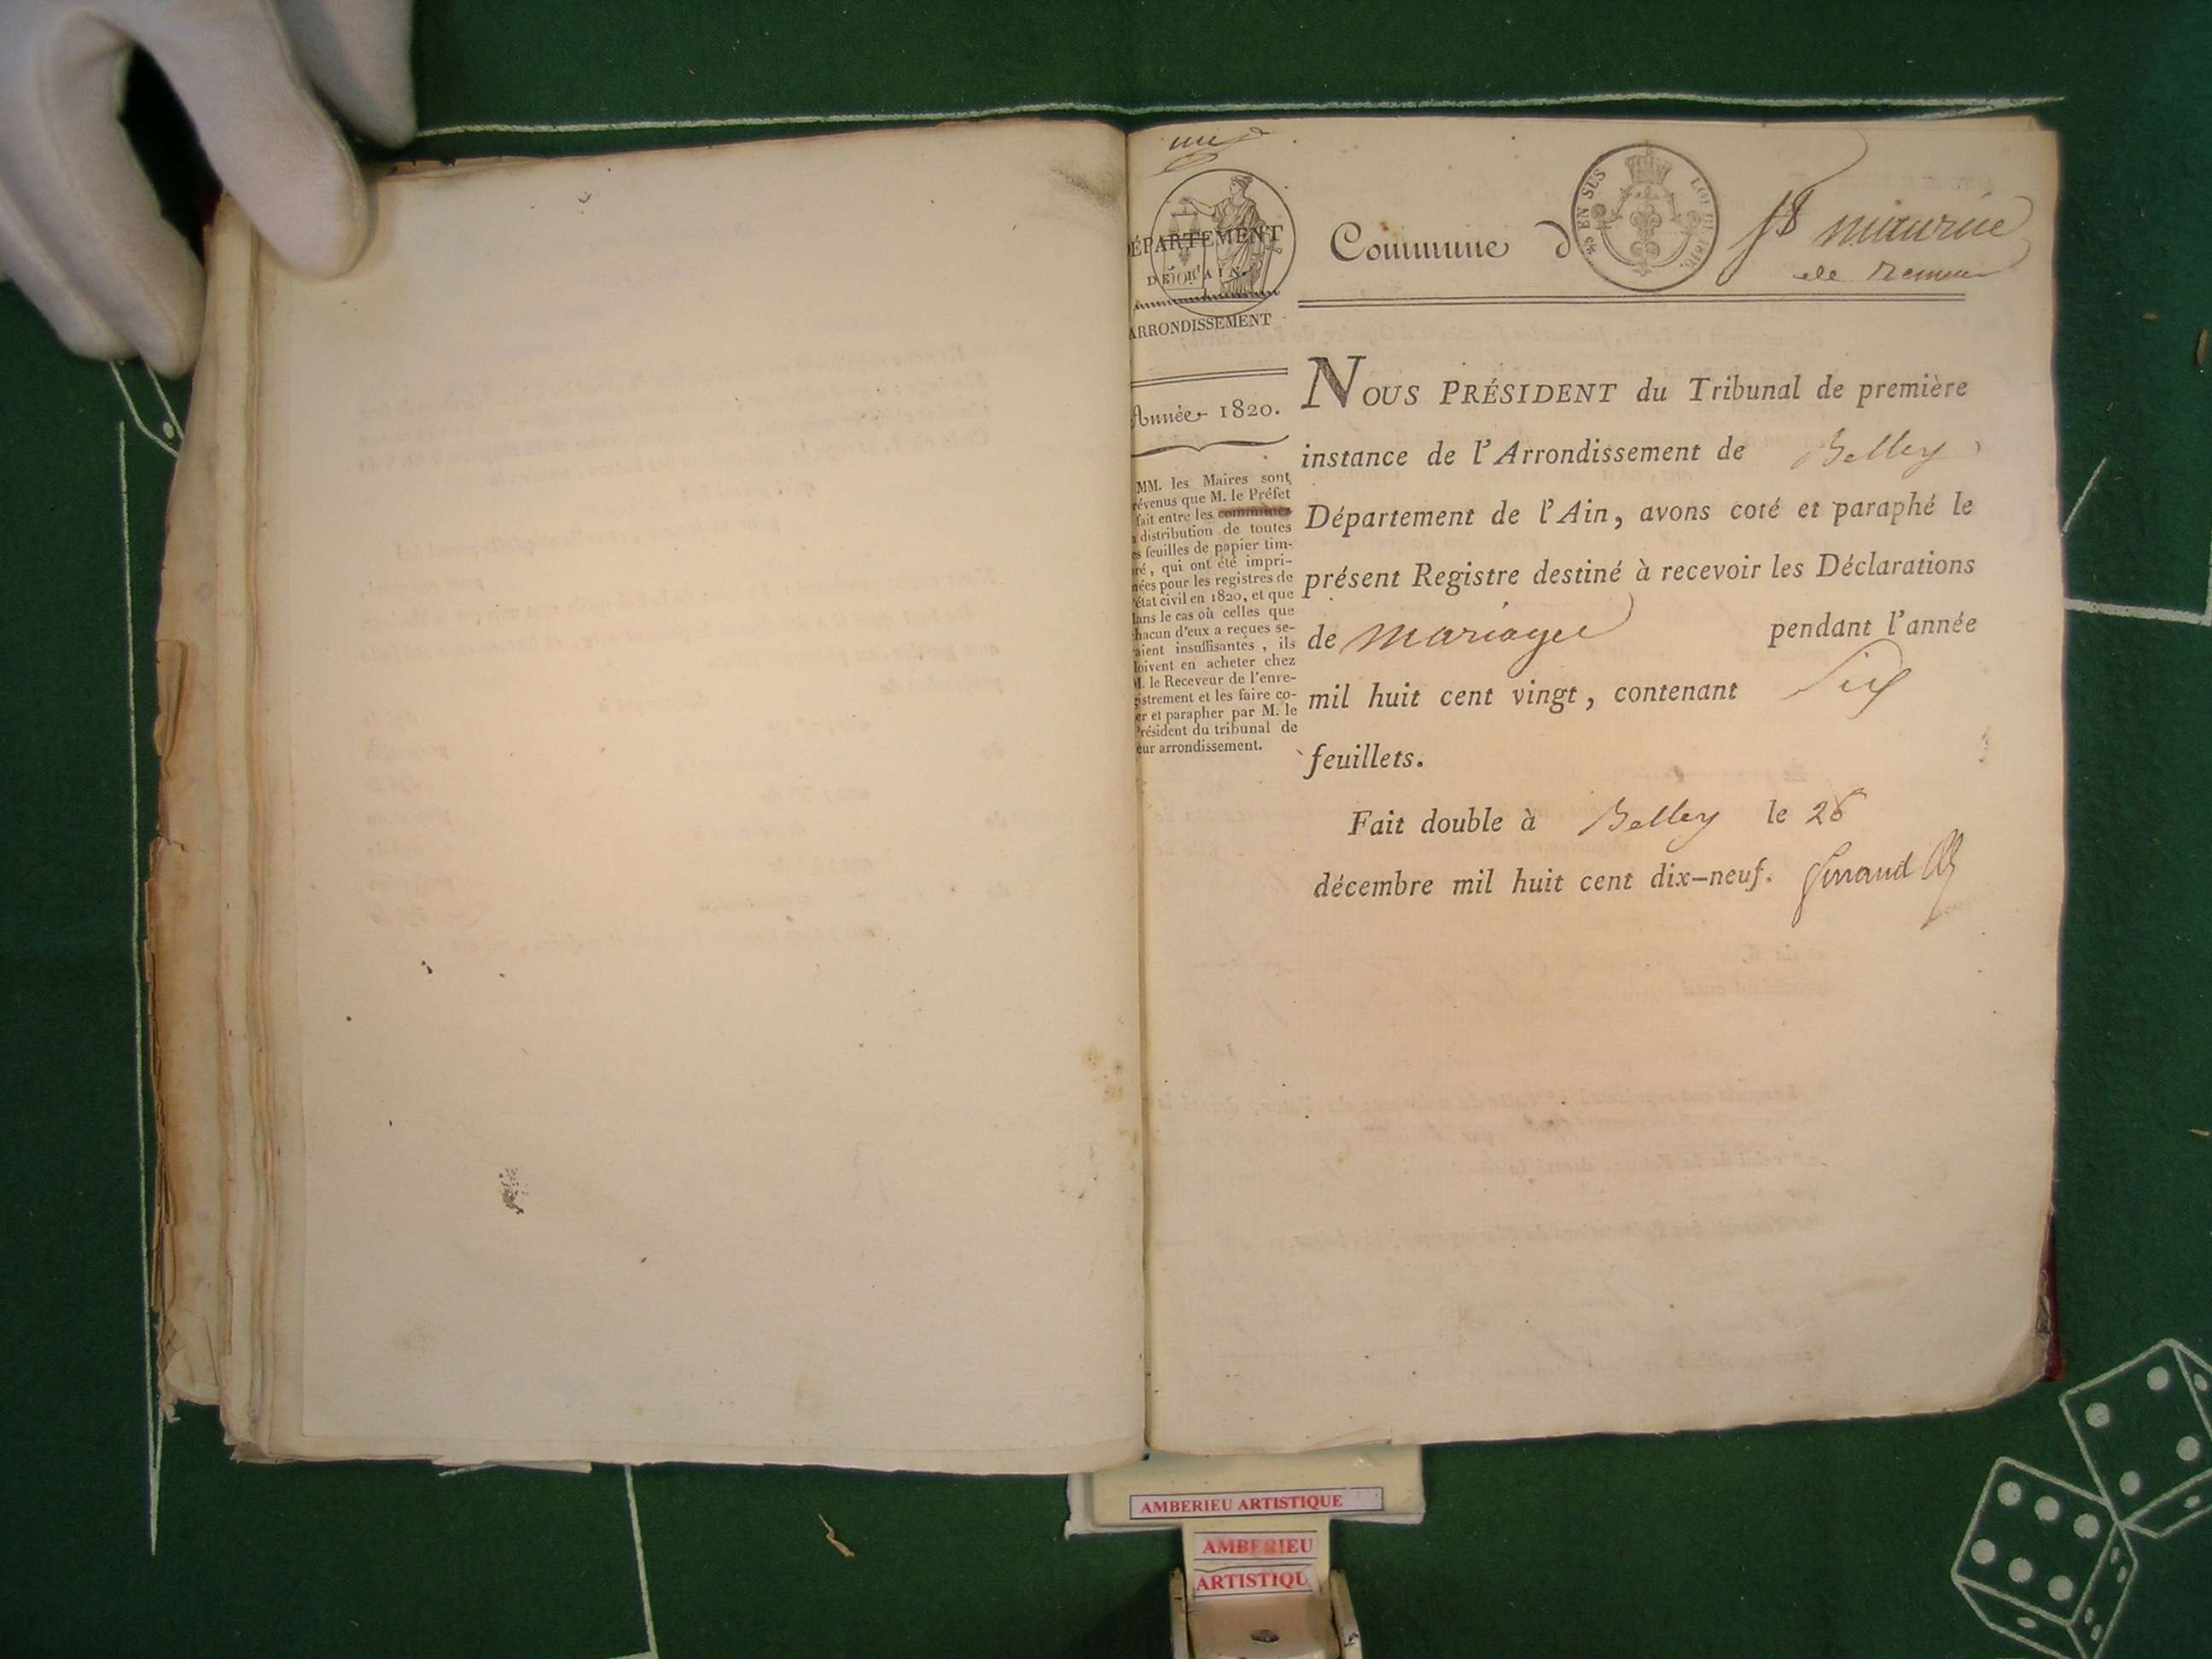 DÉPARTEMENT
DE L'AIN.
ARRONDISSEMENT
Année 1820.
MM. les Maires sont
révenus que M. le Préfet
fait entre les communes
a distribution de toutes
es feuilles de papier tim-
ré, qui ont été impri-
mées pour les registres de
l'état civil en 1820, et que
dans le cas où celles que
chacun d'eux a reçues se-
raient insuffisantes, ils
doivent en acheter chez
M. le Receveur de l'enre-
gistrement et les faire co-
er et parapher par M. le
Président du tribunal de
eur arrondissement.
EN SUS
LOI DE 1816.
Commune d St maurice
de Remens
NOUS PRÉSIDENT du Tribunal de première
instance de l'Arrondissement de Belley,
Département de l'Ain, avons coté et paraphé le
présent Registre destiné à recevoir les Déclarations
de Mariages pendant l'année
mil huit cent vingt, contenant Six
feuillets.
Fait double à Belley le 26
décembre mil huit cent dix-neuf.
AMBERIEU ARTISTIQUE
AMBERIEU
ARTISTIQU